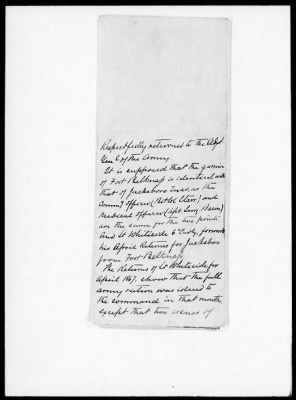 Respectfully returned to the Adjt
Genl of the Army.
It is supposed that the garrison
of Fort Belknap is identical with
that of Jacksboro Texas, as the
Comdg Officer (Bt Col Starr) and
Medical officer (
are the same for the two points.
And Lt Whiteside 6" Cavy, forwards
his April Returns for Jacksboro
from Fort Belknap.
The Returns of Lt Whiteside for
April 1867, show that the full
army ration was issued to
the command in that month,
except that two issues of